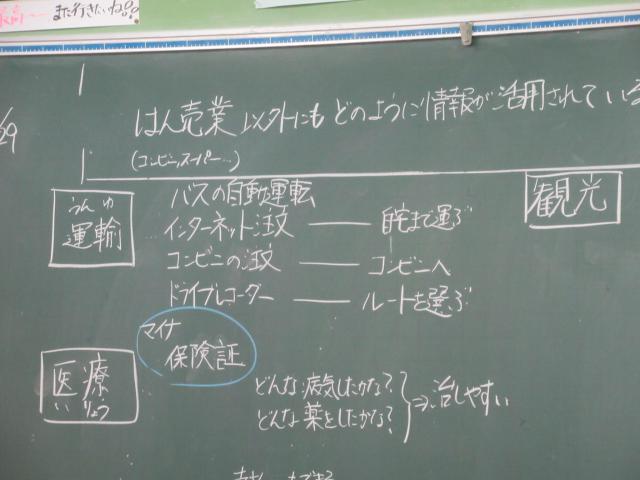 最高〜〜 また行きたいね!!
/29
はん売業以外にもどのように情報が活用されている
(コンビニ、スーパー…)
うんゆ
運輸
バスの自動運転
インターネット注文 ― 自宅まで運ぶ
コンビニの注文 ― コンビニへ
ドライブレコーダー ― ルートを選ぶ
観光
マイナ
保険証
医療
いりょう
どんな病気したかな?
どんな薬をしたかな?
⇒治しやすい